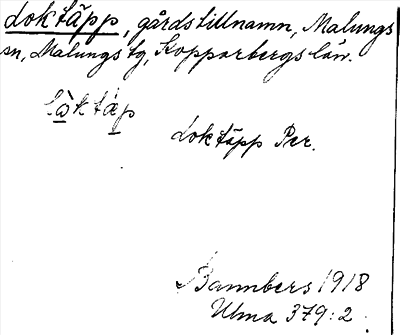 Loktäpp, gårdstillnamn, Malungs
sn, Malungs tg, Kopparbergs län.
Loktäpp Per.
Bannbers 1918
Ulma 379:2.